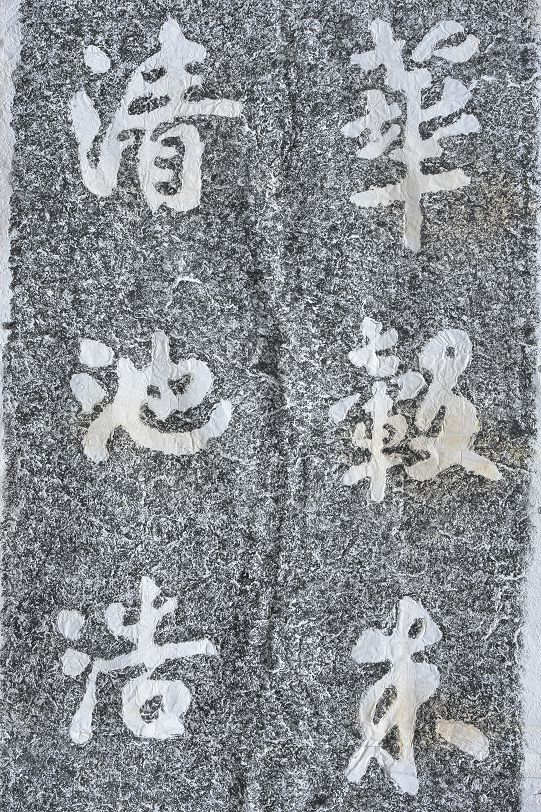 華轂未
清池浩